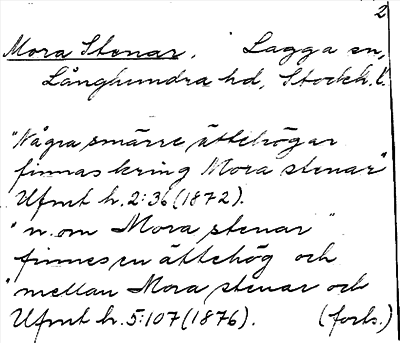 2
Mora Stenar. Lagga sn,
Långhundra hd, Stockh. l.
"Några smärre ättehögar
finnas kring Mora stenar"
Ufmt h. 2:36 (1872).
"n. om Mora stenar"
finnes en ättehög och
"mellan Mora stenar och
Ufmt h. 5:107 (1876). (forts.)